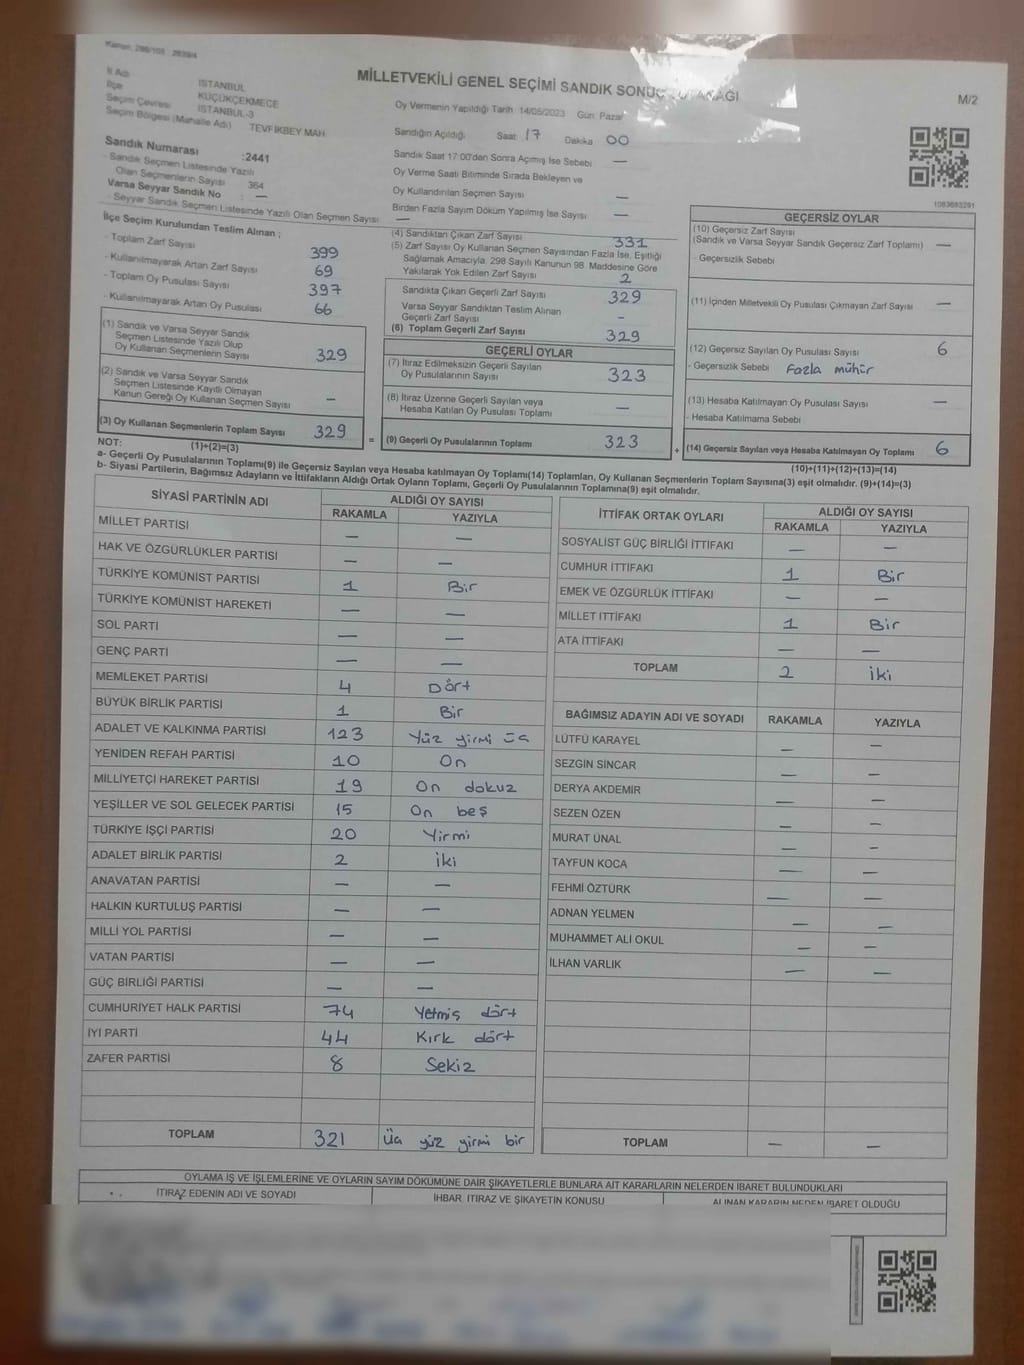 Kanun: 298/105 2839/4
MİLLETVEKİLİ GENEL SEÇİMİ SANDIK SONUÇ
M/2
İl Adı İSTANBUL
İlçe KÜÇÜKÇEKMECE
Seçim Çevresi İSTANBUL-3
Seçim Bölgesi (Mahalle Adı) TEVFİKBEY MAH
Oy Vermenin Yapıldığı Tarih 14/05/2023 Gün Pazar
Sandığın Açıldığı Saat 17 Dakika 00
Sandık Saat 17:00'dan Sonra Açımış İse Sebebi —
Oy Verme Saati Bitiminde Sırada Bekleyen ve
Oy Kullandırılan Seçmen Sayısı —
Birden Fazla Sayım Döküm Yapılmış İse Sayısı —
Sandık Numarası :2441
- Sandık Seçmen Listesinde Yazılı
Olan Seçmenlerin Sayısı 364
Varsa Seyyar Sandık No : —
- Seyyar Sandık Seçmen Listesinde Yazılı Olan Seçmen Sayısı —
1083693291
İlçe Seçim Kurulundan Teslim Alınan ;
- Toplam Zarf Sayısı 399
- Kullanılmayarak Artan Zarf Sayısı 69
- Toplam Oy Pusulası Sayısı 397
- Kullanılmayarak Artan Oy Pusulası 66
(1) Sandık ve Varsa Seyyar Sandık
Seçmen Listesinde Yazılı Olup
Oy Kullanan Seçmenlerin Sayısı 329
(2) Sandık ve Varsa Seyyar Sandık
Seçmen Listesinde Kayıtlı Olmayan
Kanun Gereği Oy Kullanan Seçmen Sayısı -
(3) Oy Kullanan Seçmenlerin Toplam Sayısı 329
(4) Sandıktan Çıkan Zarf Sayısı 331
(5) Zarf Sayısı Oy Kullanan Seçmen Sayısından Fazla İse, Eşitliği
Sağlamak Amacıyla, 298 Sayılı Kanunun 98. Maddesine Göre
Yakılarak Yok Edilen Zarf Sayısı 2
Sandıkta Çıkan Geçerli Zarf Sayısı 329
Varsa Seyyar Sandıktan Teslim Alınan
Geçerli Zarf Sayısı -
(6) Toplam Geçerli Zarf Sayısı 329
GEÇERLİ OYLAR
(7) İtiraz Edilmeksizin Geçerli Sayılan
Oy Pusulalarının Sayısı 323
(8) İtiraz Üzerine Geçerli Sayılan veya
Hesaba Katılan Oy Pusulası Toplamı —
= (9) Geçerli Oy Pusulalarının Toplamı 323
GEÇERSİZ OYLAR
(10) Geçersiz Zarf Sayısı
(Sandık ve Varsa Seyyar Sandık Geçersiz Zarf Toplamı) —
- Geçersizlik Sebebi
(11) İçinden Milletvekili Oy Pusulası Çıkmayan Zarf Sayısı —
(12) Geçersiz Sayılan Oy Pusulası Sayısı 6
- Geçersizlik Sebebi Fazla mühür
(13) Hesaba Katılmayan Oy Pusulası Sayısı —
- Hesaba Katılmama Sebebi
+ (14) Geçersiz Sayılan veya Hesaba Katılmayan Oy Toplamı 6
NOT: (1)+(2)=(3)
(10)+(11)+(12)+(13)=(14)
a- Geçerli Oy Pusulalarının Toplamı(9) ile Geçersiz Sayılan veya Hesaba katılmayan Oy Toplamı(14) Toplamları, Oy Kullanan Seçmenlerin Toplam Sayısına(3) eşit olmalıdır. (9)+(14)=(3)
b- Siyasi Partilerin, Bağımsız Adayların ve İttifakların Aldığı Ortak Oyların Toplamı, Geçerli Oy Pusulalarının Toplamına(9) eşit olmalıdır.
SİYASİ PARTİNİN ADI ALDIĞI OY SAYISI
RAKAMLA YAZIYLA
MİLLET PARTİSİ — —
HAK VE ÖZGÜRLÜKLER PARTİSİ — —
TÜRKİYE KOMÜNİST PARTİSİ 1 Bir
TÜRKİYE KOMÜNİST HAREKETİ — —
SOL PARTİ — —
GENÇ PARTİ — —
MEMLEKET PARTİSİ 4 Dört
BÜYÜK BİRLİK PARTİSİ 1 Bir
ADALET VE KALKINMA PARTİSİ 123 Yüz yirmi üç
YENİDEN REFAH PARTİSİ 10 On
MİLLİYETÇİ HAREKET PARTİSİ 19 On dokuz
YEŞİLLER VE SOL GELECEK PARTİSİ 15 On beş
TÜRKİYE İŞÇİ PARTİSİ 20 Yirmi
ADALET BİRLİK PARTİSİ 2 iki
ANAVATAN PARTİSİ — —
HALKIN KURTULUŞ PARTİSİ — —
MİLLİ YOL PARTİSİ — —
VATAN PARTİSİ — —
GÜÇ BİRLİĞİ PARTİSİ — —
CUMHURİYET HALK PARTİSİ 74 Yetmiş dört
İYİ PARTİ 44 Kırk dört
ZAFER PARTİSİ 8 Sekiz
TOPLAM 321 Üç yüz yirmi bir
İTTİFAK ORTAK OYLARI ALDIĞI OY SAYISI
RAKAMLA YAZIYLA
SOSYALİST GÜÇ BİRLİĞİ İTTİFAKI — —
CUMHUR İTTİFAKI 1 Bir
EMEK VE ÖZGÜRLÜK İTTİFAKI — —
MİLLET İTTİFAKI 1 Bir
ATA İTTİFAKI — —
TOPLAM 2 iki
BAĞIMSIZ ADAYIN ADI VE SOYADI RAKAMLA YAZIYLA
LÜTFÜ KARAYEL — —
SEZGİN SİNCAR — —
DERYA AKDEMİR — —
SEZEN ÖZEN — —
MURAT ÜNAL — —
TAYFUN KOCA — —
FEHMİ ÖZTÜRK — —
ADNAN YELMEN — —
MUHAMMET ALİ OKUL — —
İLHAN VARLIK — —
TOPLAM — —
OYLAMA İŞ VE İŞLEMLERİNE VE OYLARIN SAYIM DÖKÜMÜNE DAİR ŞİKAYETLERLE BUNLARA AİT KARARLARIN NELERDEN İBARET BULUNDUKLARI
İTİRAZ EDENİN ADI VE SOYADI İHBAR, İTİRAZ VE ŞİKAYETİN KONUSU ALINAN KARARIN NEDEN İBARET OLDUĞU